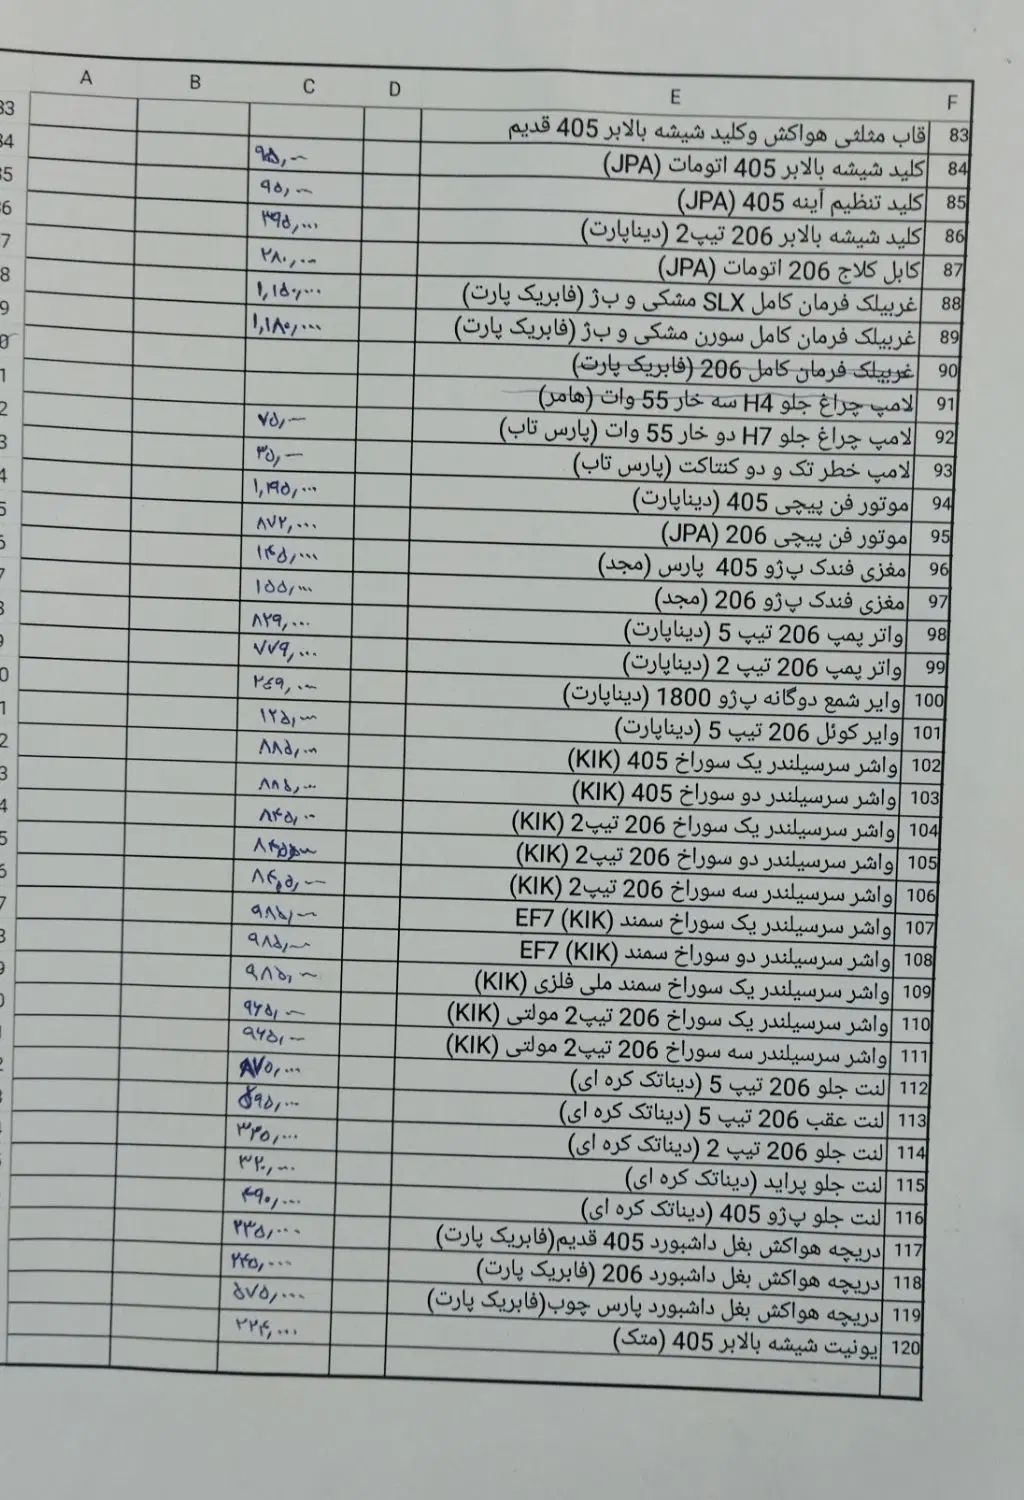 A B C D E F
83 قاب مثلثی هواکش وکلید شیشه بالابر 405 قدیم
84 کلید شیشه بالابر 405 اتومات (JPA) ۹۵,۰۰۰
85 کلید تنظیم آینه 405 (JPA) ۹۰,۰۰۰
86 کلید شیشه بالابر 206 تیپ2 (دیناپارت) ۳۹۵,۰۰۰
87 کابل کلاج 206 اتومات (JPA) ۲۸۰,۰۰۰
88 غربیلک فرمان کامل SLX مشکی و ب‌ژ (فابریک پارت) ۱,۱۵۰,۰۰۰
89 غربیلک فرمان کامل سورن مشکی و ب‌ژ (فابریک پارت) ۱,۱۸۰,۰۰۰
90 غربیلک فرمان کامل 206 (فابریک پارت)
91 لامپ چراغ جلو H4 سه خار 55 وات (هامر)
92 لامپ چراغ جلو H7 دو خار 55 وات (پارس تاب) ۷۵,۰۰۰
93 لامپ خطر تک و دو کنتاکت (پارس تاب) ۳۵,۰۰۰
94 موتور فن پیچی 405 (دیناپارت) ۱,۱۹۵,۰۰۰
95 موتور فن پیچی 206 (JPA) ۸۷۲,۰۰۰
96 مغزی فندک پ‌ژو 405 پارس (مجد) ۱۴۵,۰۰۰
97 مغزی فندک پ‌ژو 206 (مجد) ۱۵۵,۰۰۰
98 واتر پمپ 206 تیپ 5 (دیناپارت) ۸۲۹,۰۰۰
99 واتر پمپ 206 تیپ 2 (دیناپارت) ۷۷۹,۰۰۰
100 وایر شمع دوگانه پ‌ژو 1800 (دیناپارت) ۲۴۹,۰۰۰
101 وایر کوئل 206 تیپ 5 (دیناپارت) ۱۲۵,۰۰۰
102 واشر سرسیلندر یک سوراخ 405 (KIK) ۸۸۵,۰۰۰
103 واشر سرسیلندر دو سوراخ 405 (KIK) ۸۸۵,۰۰۰
104 واشر سرسیلندر یک سوراخ 206 تیپ2 (KIK) ۸۴۵,۰۰۰
105 واشر سرسیلندر دو سوراخ 206 تیپ2 (KIK)
106 واشر سرسیلندر سه سوراخ 206 تیپ2 (KIK) ۸۴۵,۰۰۰
107 واشر سرسیلندر یک سوراخ سمند EF7 (KIK) ۹۸۵,۰۰۰
108 واشر سرسیلندر دو سوراخ سمند EF7 (KIK) ۹۸۵,۰۰۰
109 واشر سرسیلندر یک سوراخ سمند ملی فلزی (KIK) ۹۸۵,۰۰۰
110 واشر سرسیلندر یک سوراخ 206 تیپ2 مولتی (KIK) ۹۶۵,۰۰۰
111 واشر سرسیلندر سه سوراخ 206 تیپ2 مولتی (KIK) ۹۶۵,۰۰۰
112 لنت جلو 206 تیپ 5 (دیناتک کره ای) ۸۷۰,۰۰۰
113 لنت عقب 206 تیپ 5 (دیناتک کره ای) ۵۹۵,۰۰۰
114 لنت جلو 206 تیپ 2 (دیناتک کره ای) ۳۴۵,۰۰۰
115 لنت جلو پراید (دیناتک کره ای) ۳۲۰,۰۰۰
116 لنت جلو پ‌ژو 405 (دیناتک کره ای) ۴۹۰,۰۰۰
117 دریچه هواکش بغل داشبورد 405 قدیم(فابریک پارت) ۲۳۵,۰۰۰
118 دریچه هواکش بغل داشبورد 206 (فابریک پارت) ۲۴۵,۰۰۰
119 دریچه هواکش بغل داشبورد پارس چوب(فابریک پارت) ۵۷۵,۰۰۰
120 یونیت شیشه بالابر 405 (متک) ۲۲۴,۰۰۰